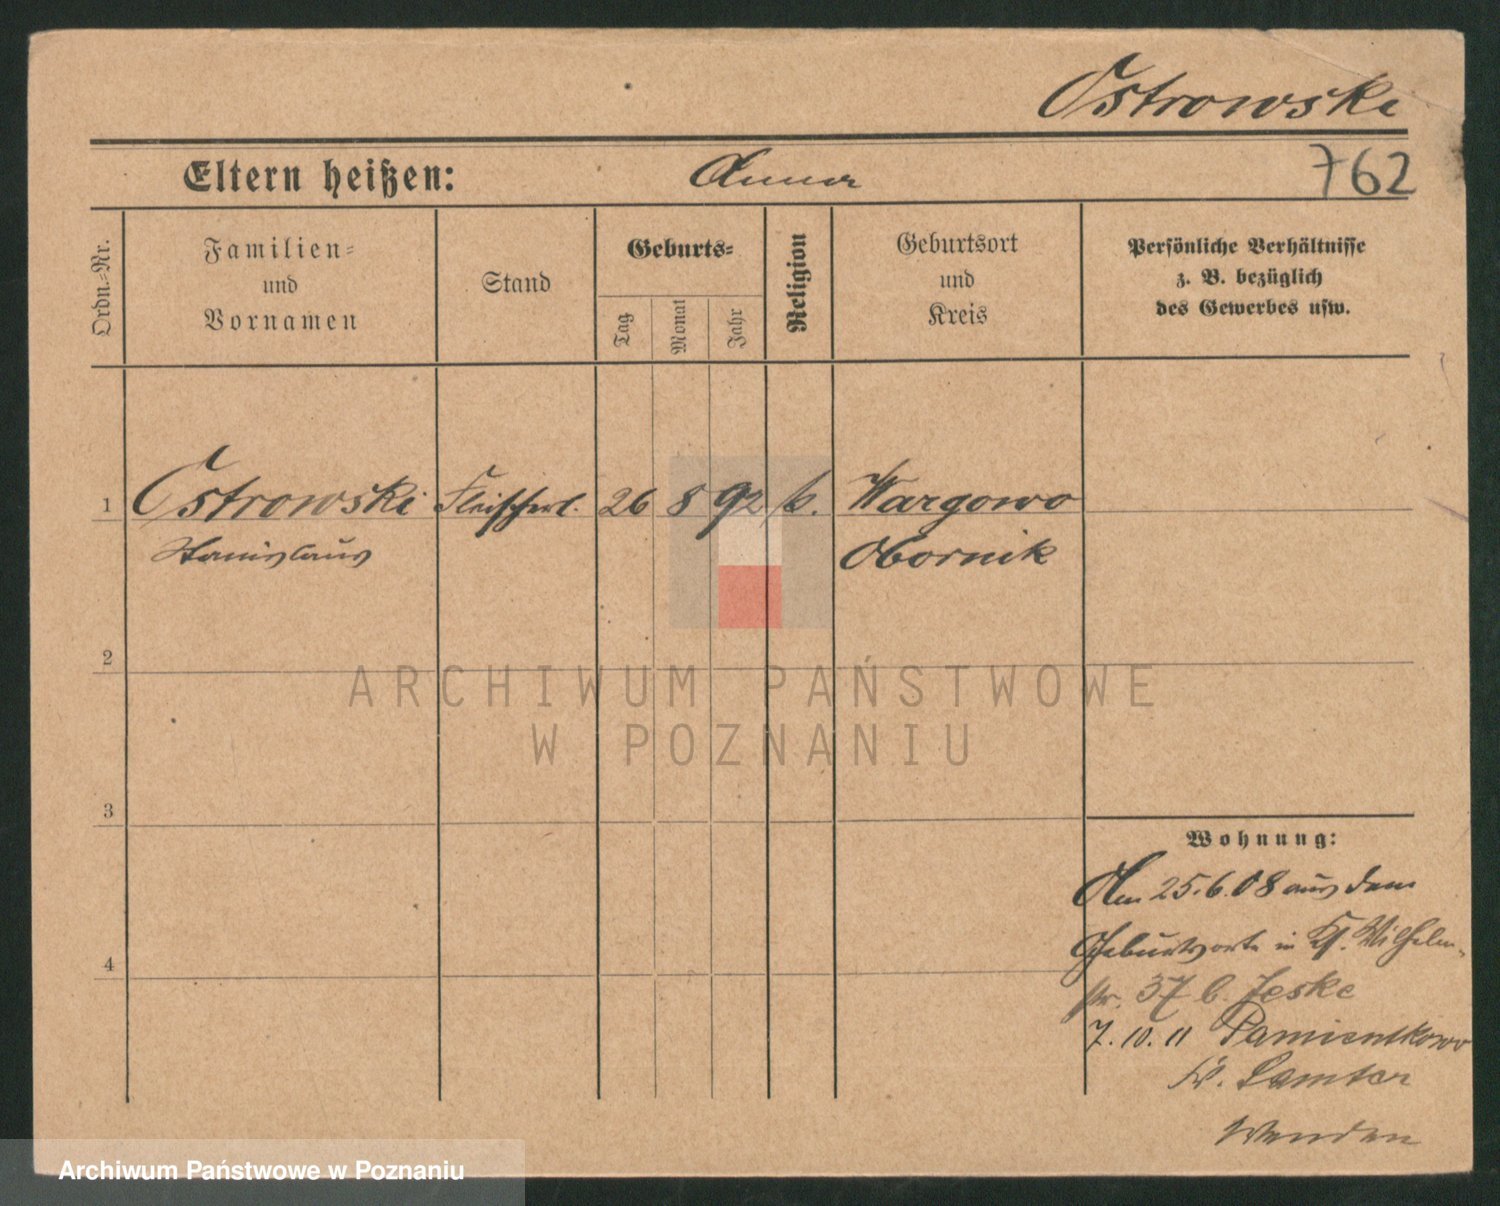 Ostrowski
Eltern heißen: Anna 762
Ordn.-Nr.
Familien-
und
Vornamen
Stand
Geburts-
Tag
Monat
Jahr
Religion
Geburtsort
und
Kreis
Persönliche Verhältnisse
z. B. bezüglich
des Gewerbes usw.
1 Ostrowski Fleischerl. 26 8 92 k. Wargowo
Stanislaus Obornik
2
3
4
Wohnung:
Am 25.6.08 aus dem
Geburtsorte in Kl. Wilhelm-
str. 37 b. Jeske
7.10.11 Pamientkowo
Kr. Samter
Wenden
ARCHIWUM PAŃSTWOWE
W POZNANIU
Archiwum Państwowe w Poznaniu